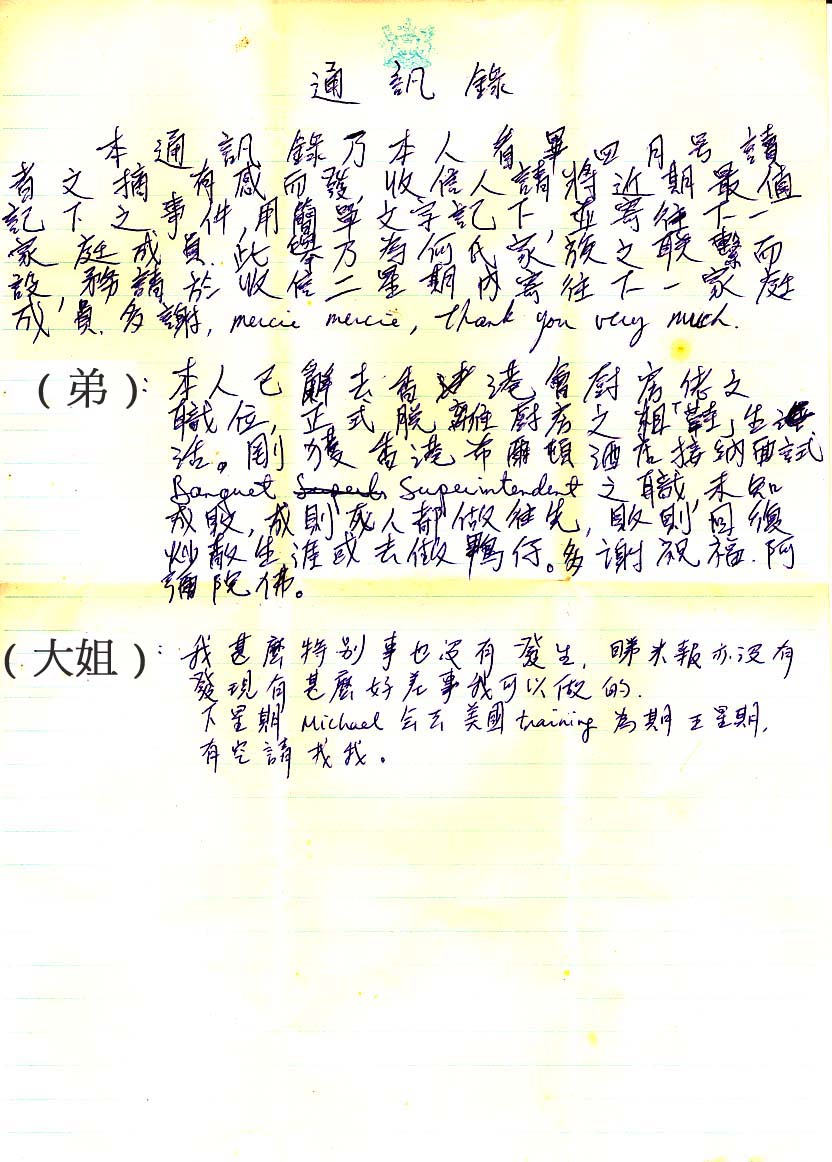 通訊錄
本通訊錄乃本人看畢四月号讀
者文摘有感而發,收信人請將近期最值
記下之事件,用簡單文字記下,並寄往下一
家庭成員,此舉乃為何氏家族之聯繫而
設,務請於收信二星期內寄往下一家庭
成員.多謝, mercie mercie, thank you very much.
(弟): 本人已辭去香港會廚房佬文
職位,正式脫離廚房之粗「鞋」生
活。剛獲香港布爾頓酒店接納面試
Banquet Superintendent 之職,未知
成敗,成則成人都做往先,敗則回復
炒散生涯或去做鴨仔。多謝祝福.阿
彌陀佛。
(大姐): 我甚麼特別事也沒有發生,睇米報亦沒有
發現有甚麼好差事我可以做的.
下星期 Michael 会去美國 training 為期五星期,
有空請找我。